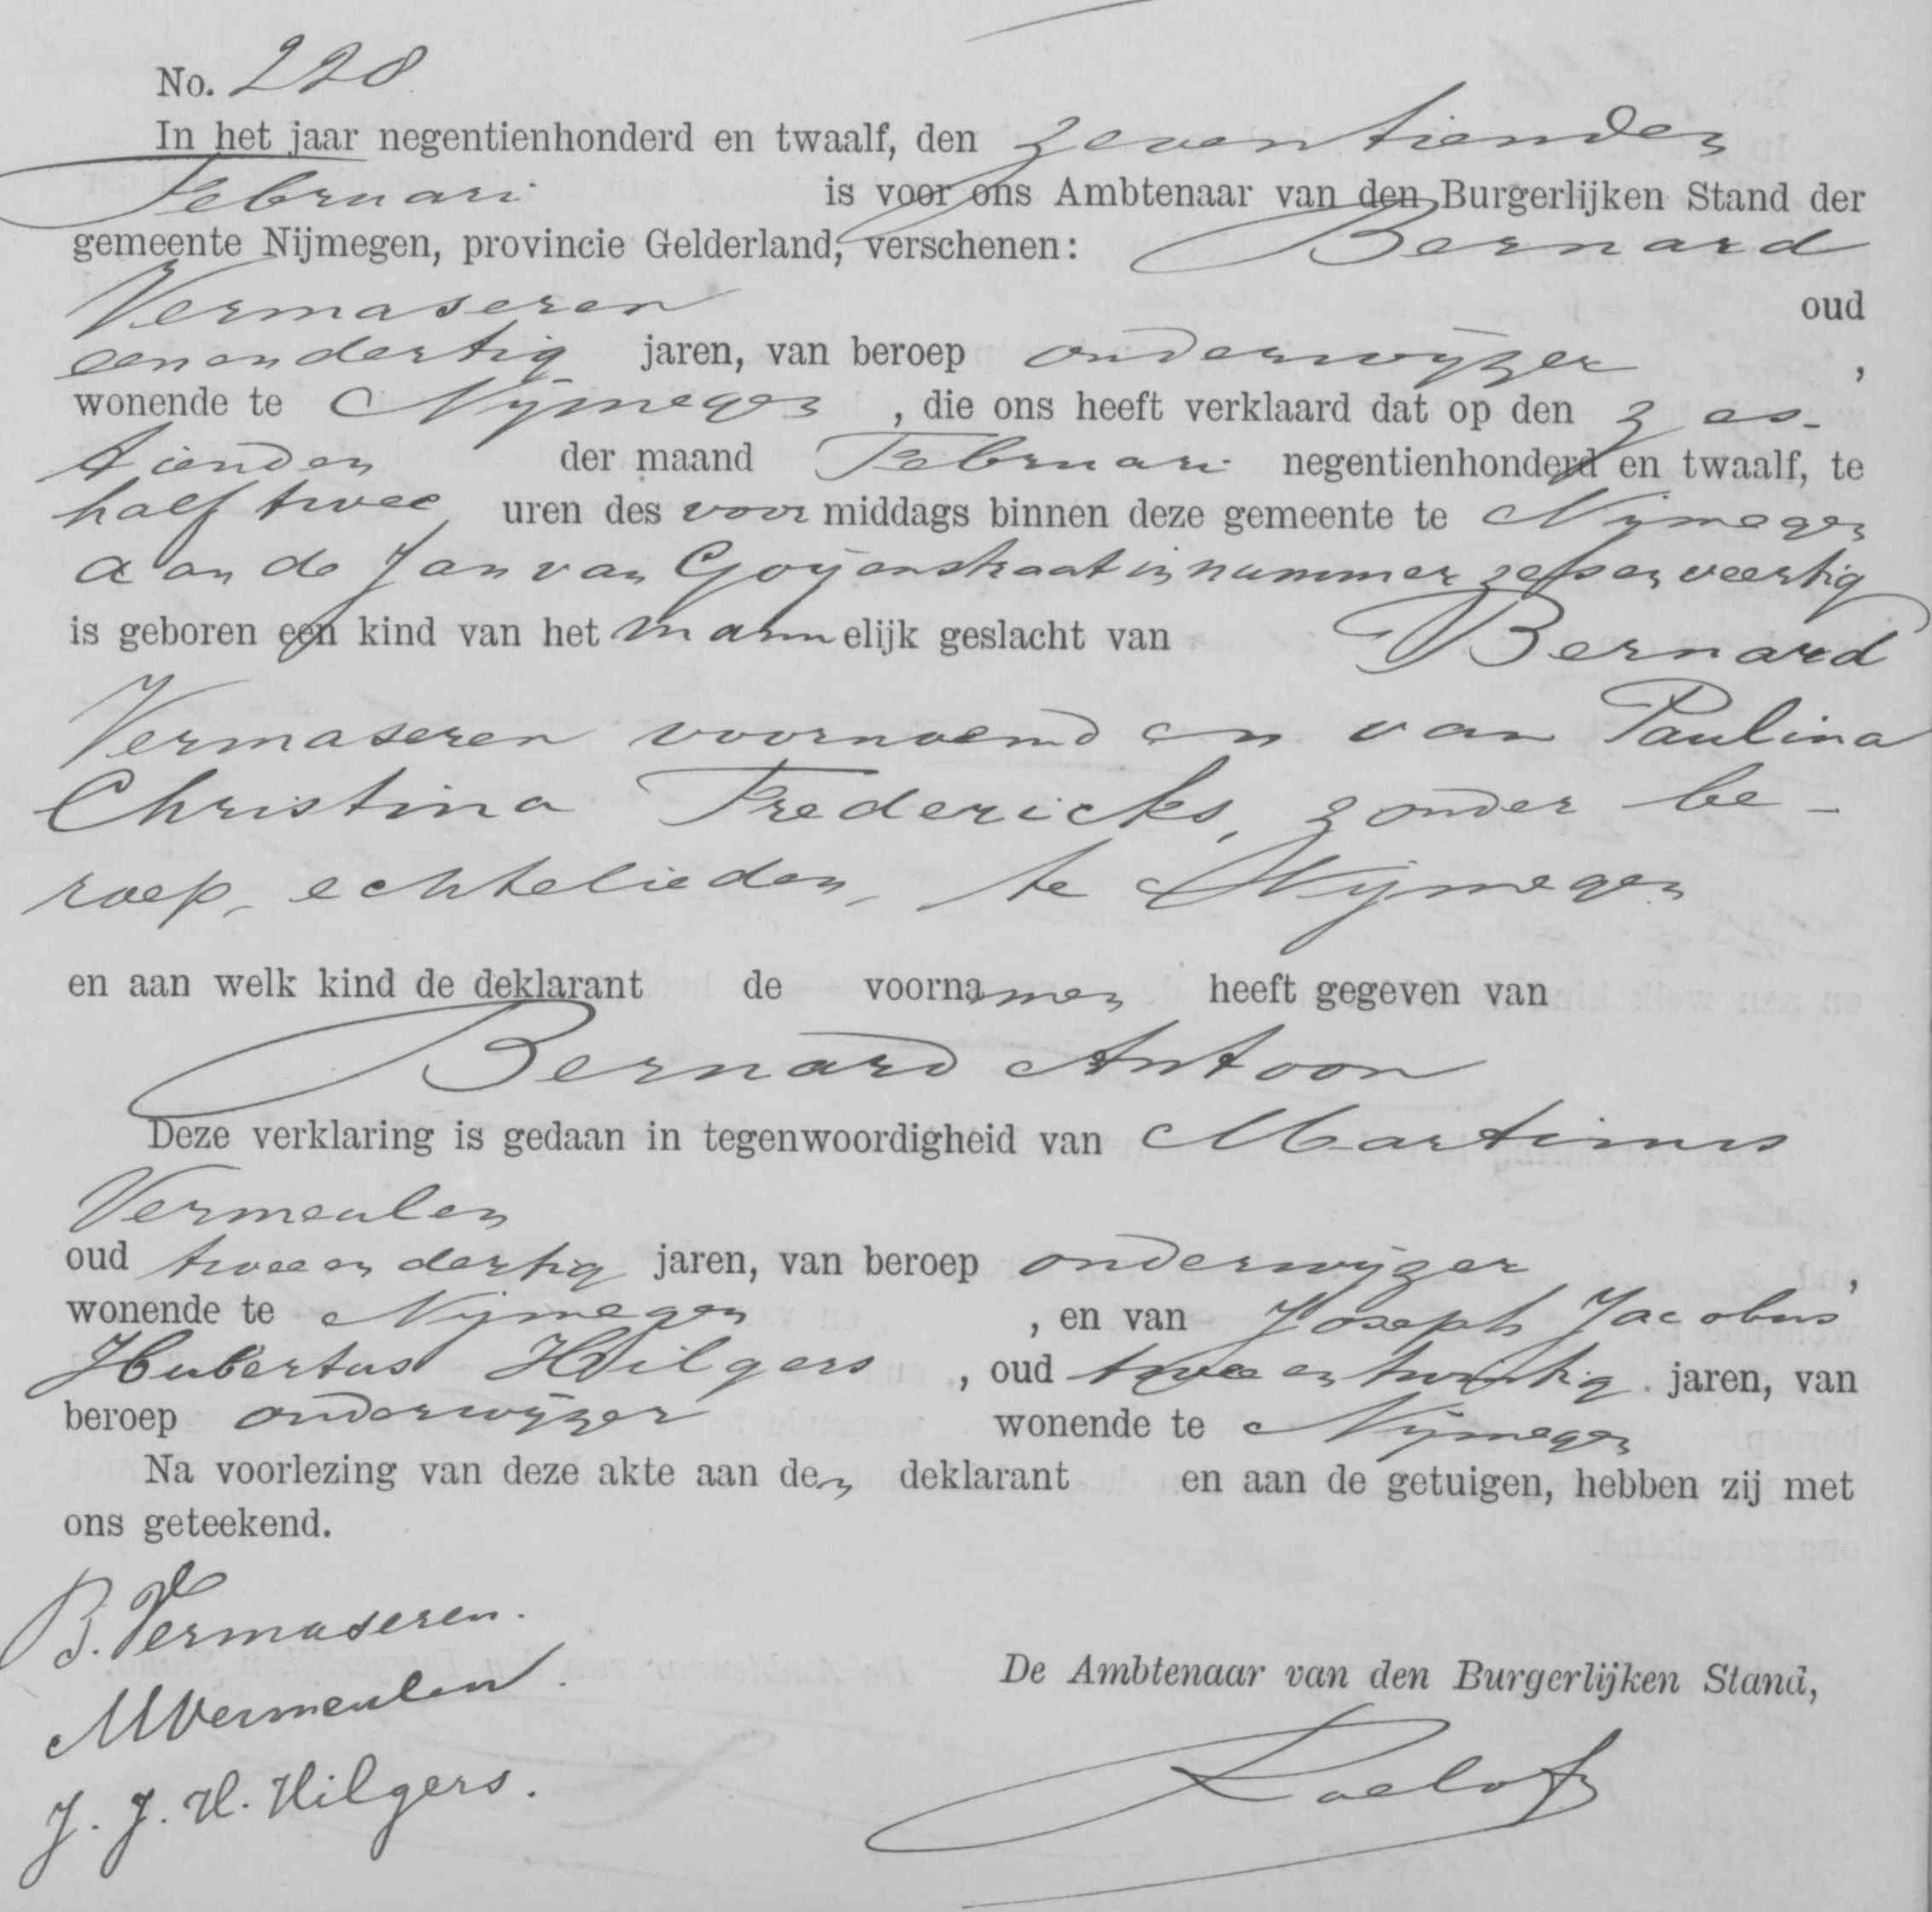 No. 228
In het jaar negentienhonderd en twaalf, den zeventienden
Februari is voor ons Ambtenaar van den Burgerlijken Stand der
gemeente Nijmegen, provincie Gelderland, verschenen: Bernard
Vermaseren oud
eenendertig jaren, van beroep onderwijzer ,
wonende te Nijmegen , die ons heeft verklaard dat op den zes-
tienden der maand Februari negentienhonderd en twaalf, te
half twee uren des voormiddags binnen deze gemeente te Nijmegen
aan de Jan van Goyenstraat in nummer zesenveertig
is geboren een kind van het mannelijk geslacht van Bernard
Vermaseren voornoemd en van Paulina
Christina Fredericks, zonder be-
roep, echtelieden, te Nijmegen
en aan welk kind de deklarant de voornamen heeft gegeven van
Bernard Antoon
Deze verklaring is gedaan in tegenwoordigheid van Martinus
Vermeulen
oud tweeendertig jaren, van beroep onderwijzer ,
wonende te Nijmegen , en van Joseph Jacobus
Hubertus Hilgers , oud tweeentwintig jaren, van
beroep onderwijzer wonende te Nijmegen
Na voorlezing van deze akte aan den deklarant en aan de getuigen, hebben zij met
ons geteekend.
B. Vermaseren.
MVermeulen.
De Ambtenaar van den Burgerlijken Stand,
J. J. H. Hilgers.